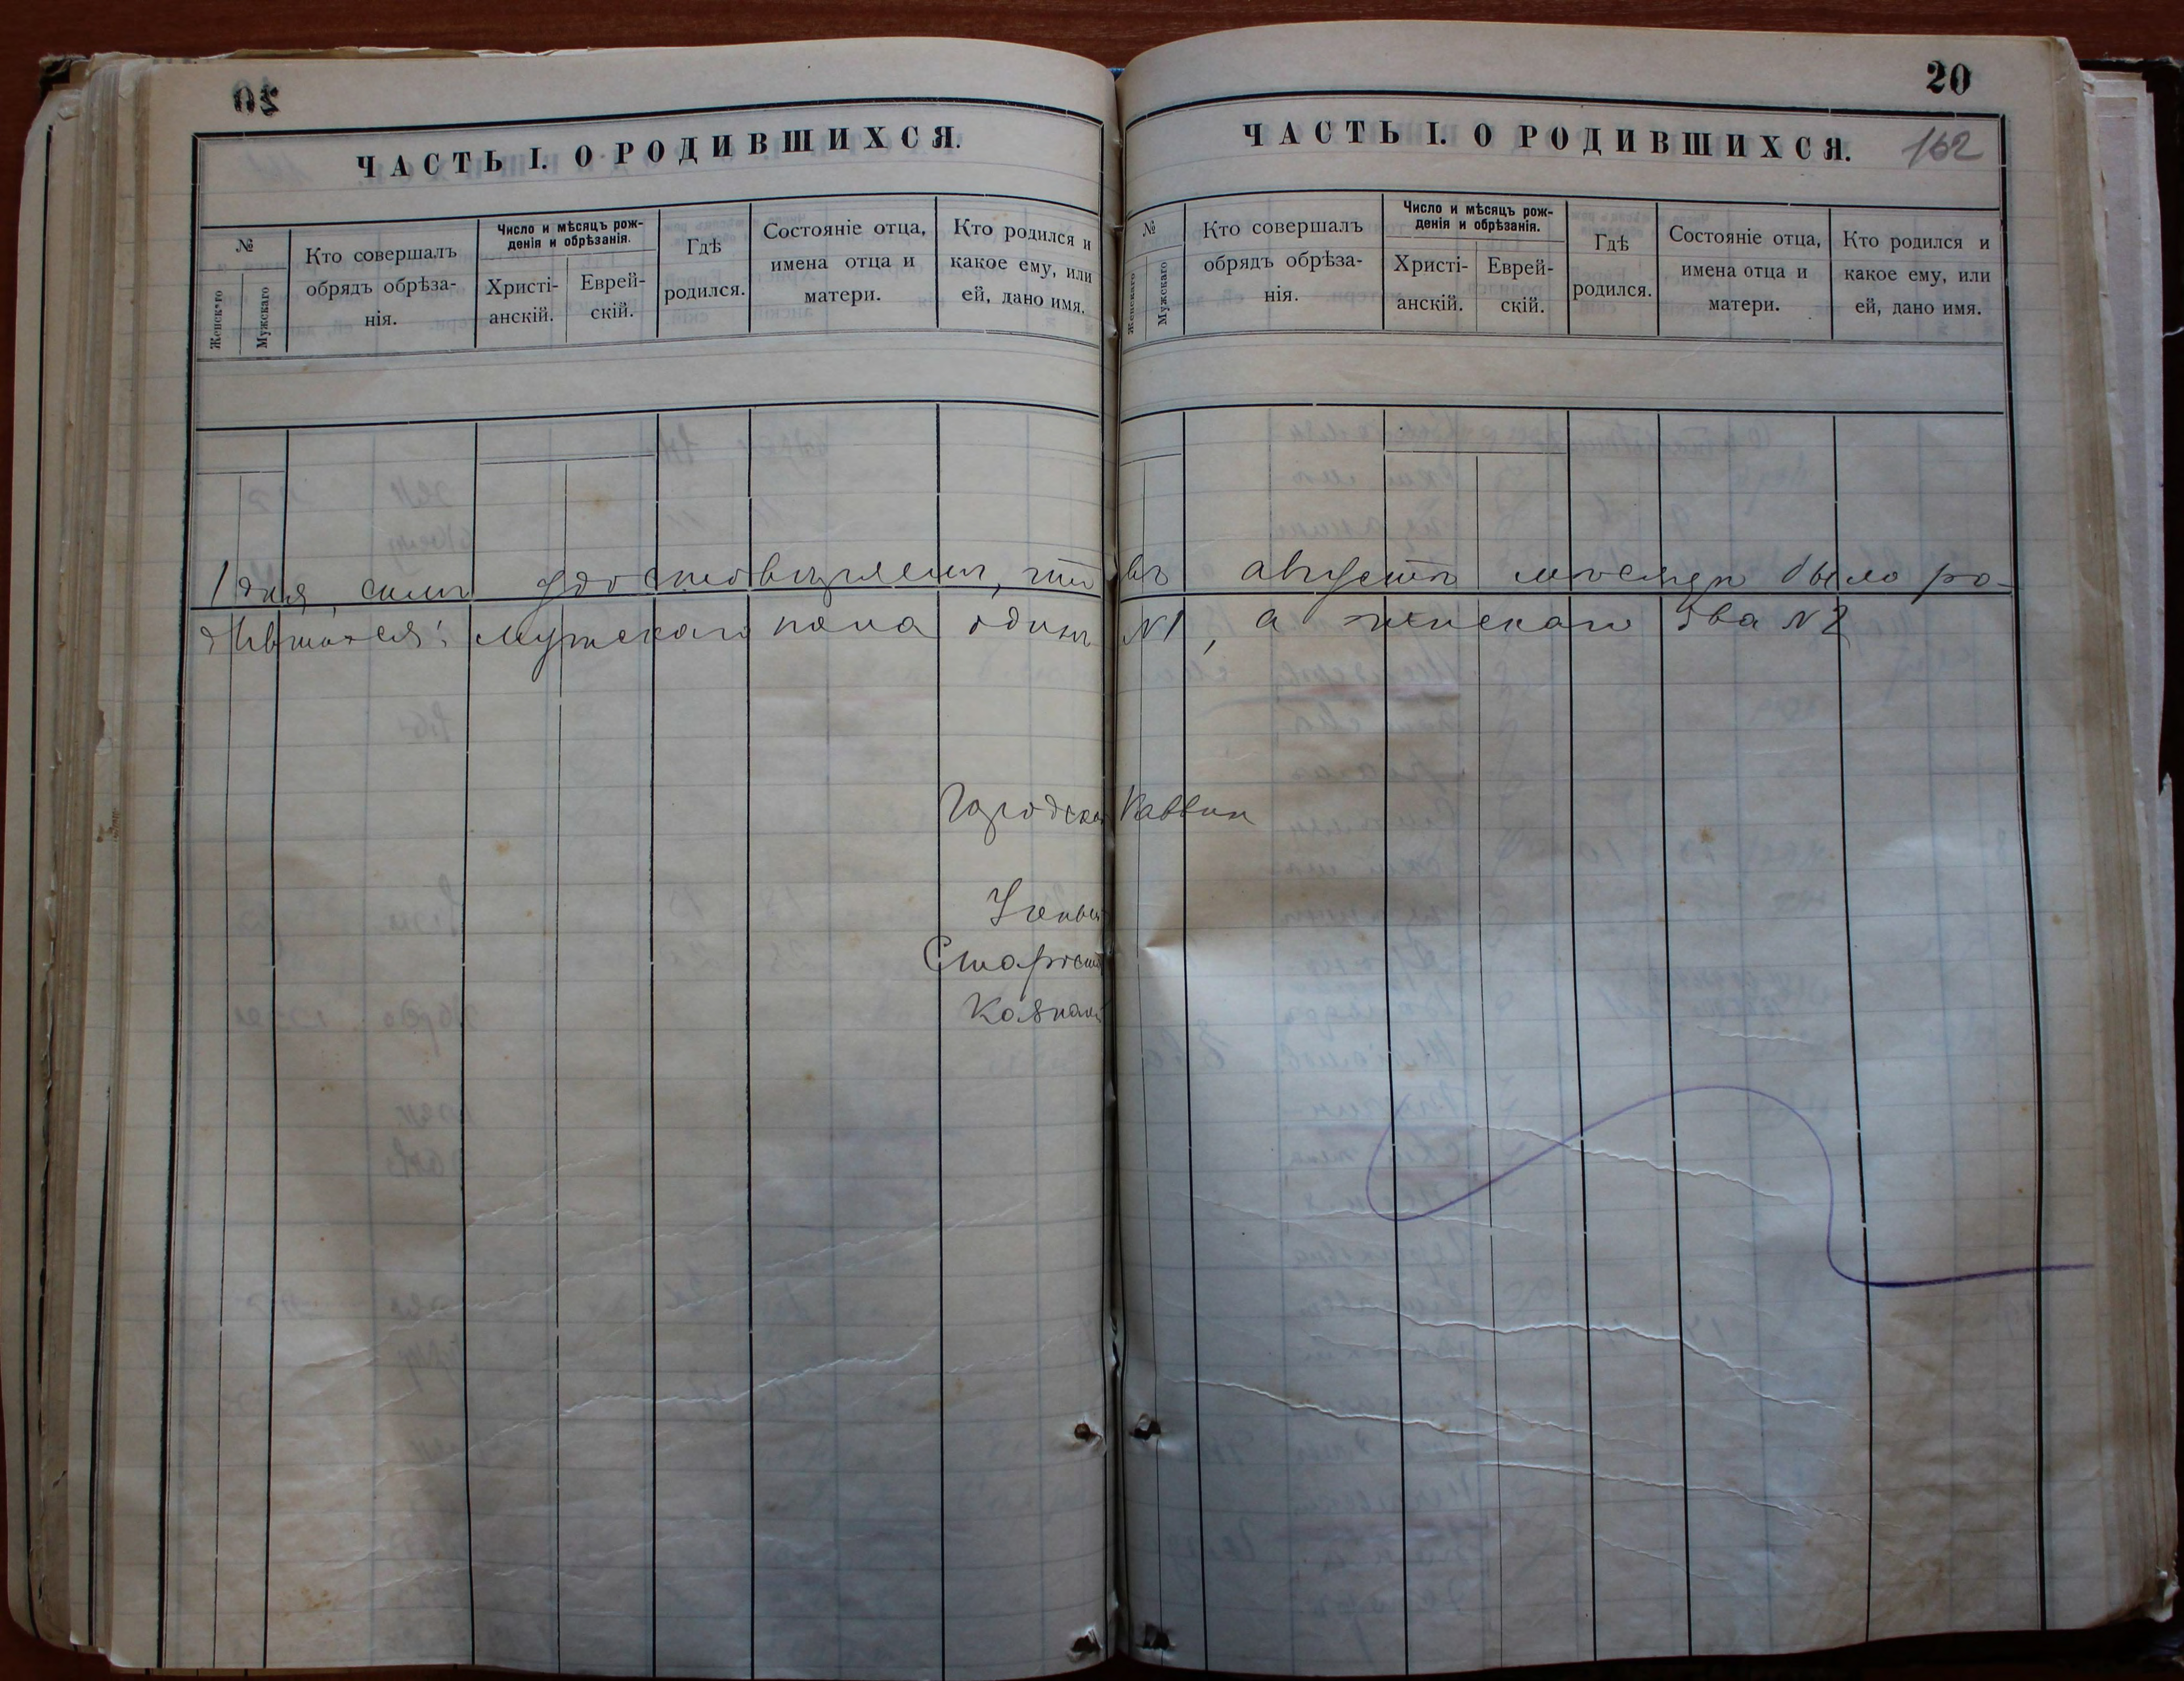 20
ЧАСТЬ I. О РОДИВШИХСЯ.
№
Женскаго
Мужскаго
Кто совершалъ
обрядъ обрѣза-
нія.
Число и мѣсяцъ рож-
денія и обрѣзанія.
Христі-
анскій.
Еврей-
скій.
Гдѣ
родился.
Состояніе отца,
имена отца и
матери.
Кто родился и
какое ему, или
ей, дано имя.
20
ЧАСТЬ I. О РОДИВШИХСЯ.
162
№
Женскаго
Мужскаго
Кто совершалъ
обрядъ обрѣза-
нія.
Число и мѣсяцъ рож-
денія и обрѣзанія.
Христі-
анскій.
Еврей-
скій.
Гдѣ
родился.
Состояніе отца,
имена отца и
матери.
Кто родился и
какое ему, или
ей, дано имя.
1 дня, симъ удостовѣряемъ, что въ августѣ мѣсяцѣ было ро-
дившихся: мужскаго пола одинъ №1, а женскаго два №2
Городской Раввин
Ученый
Староста
Казначей